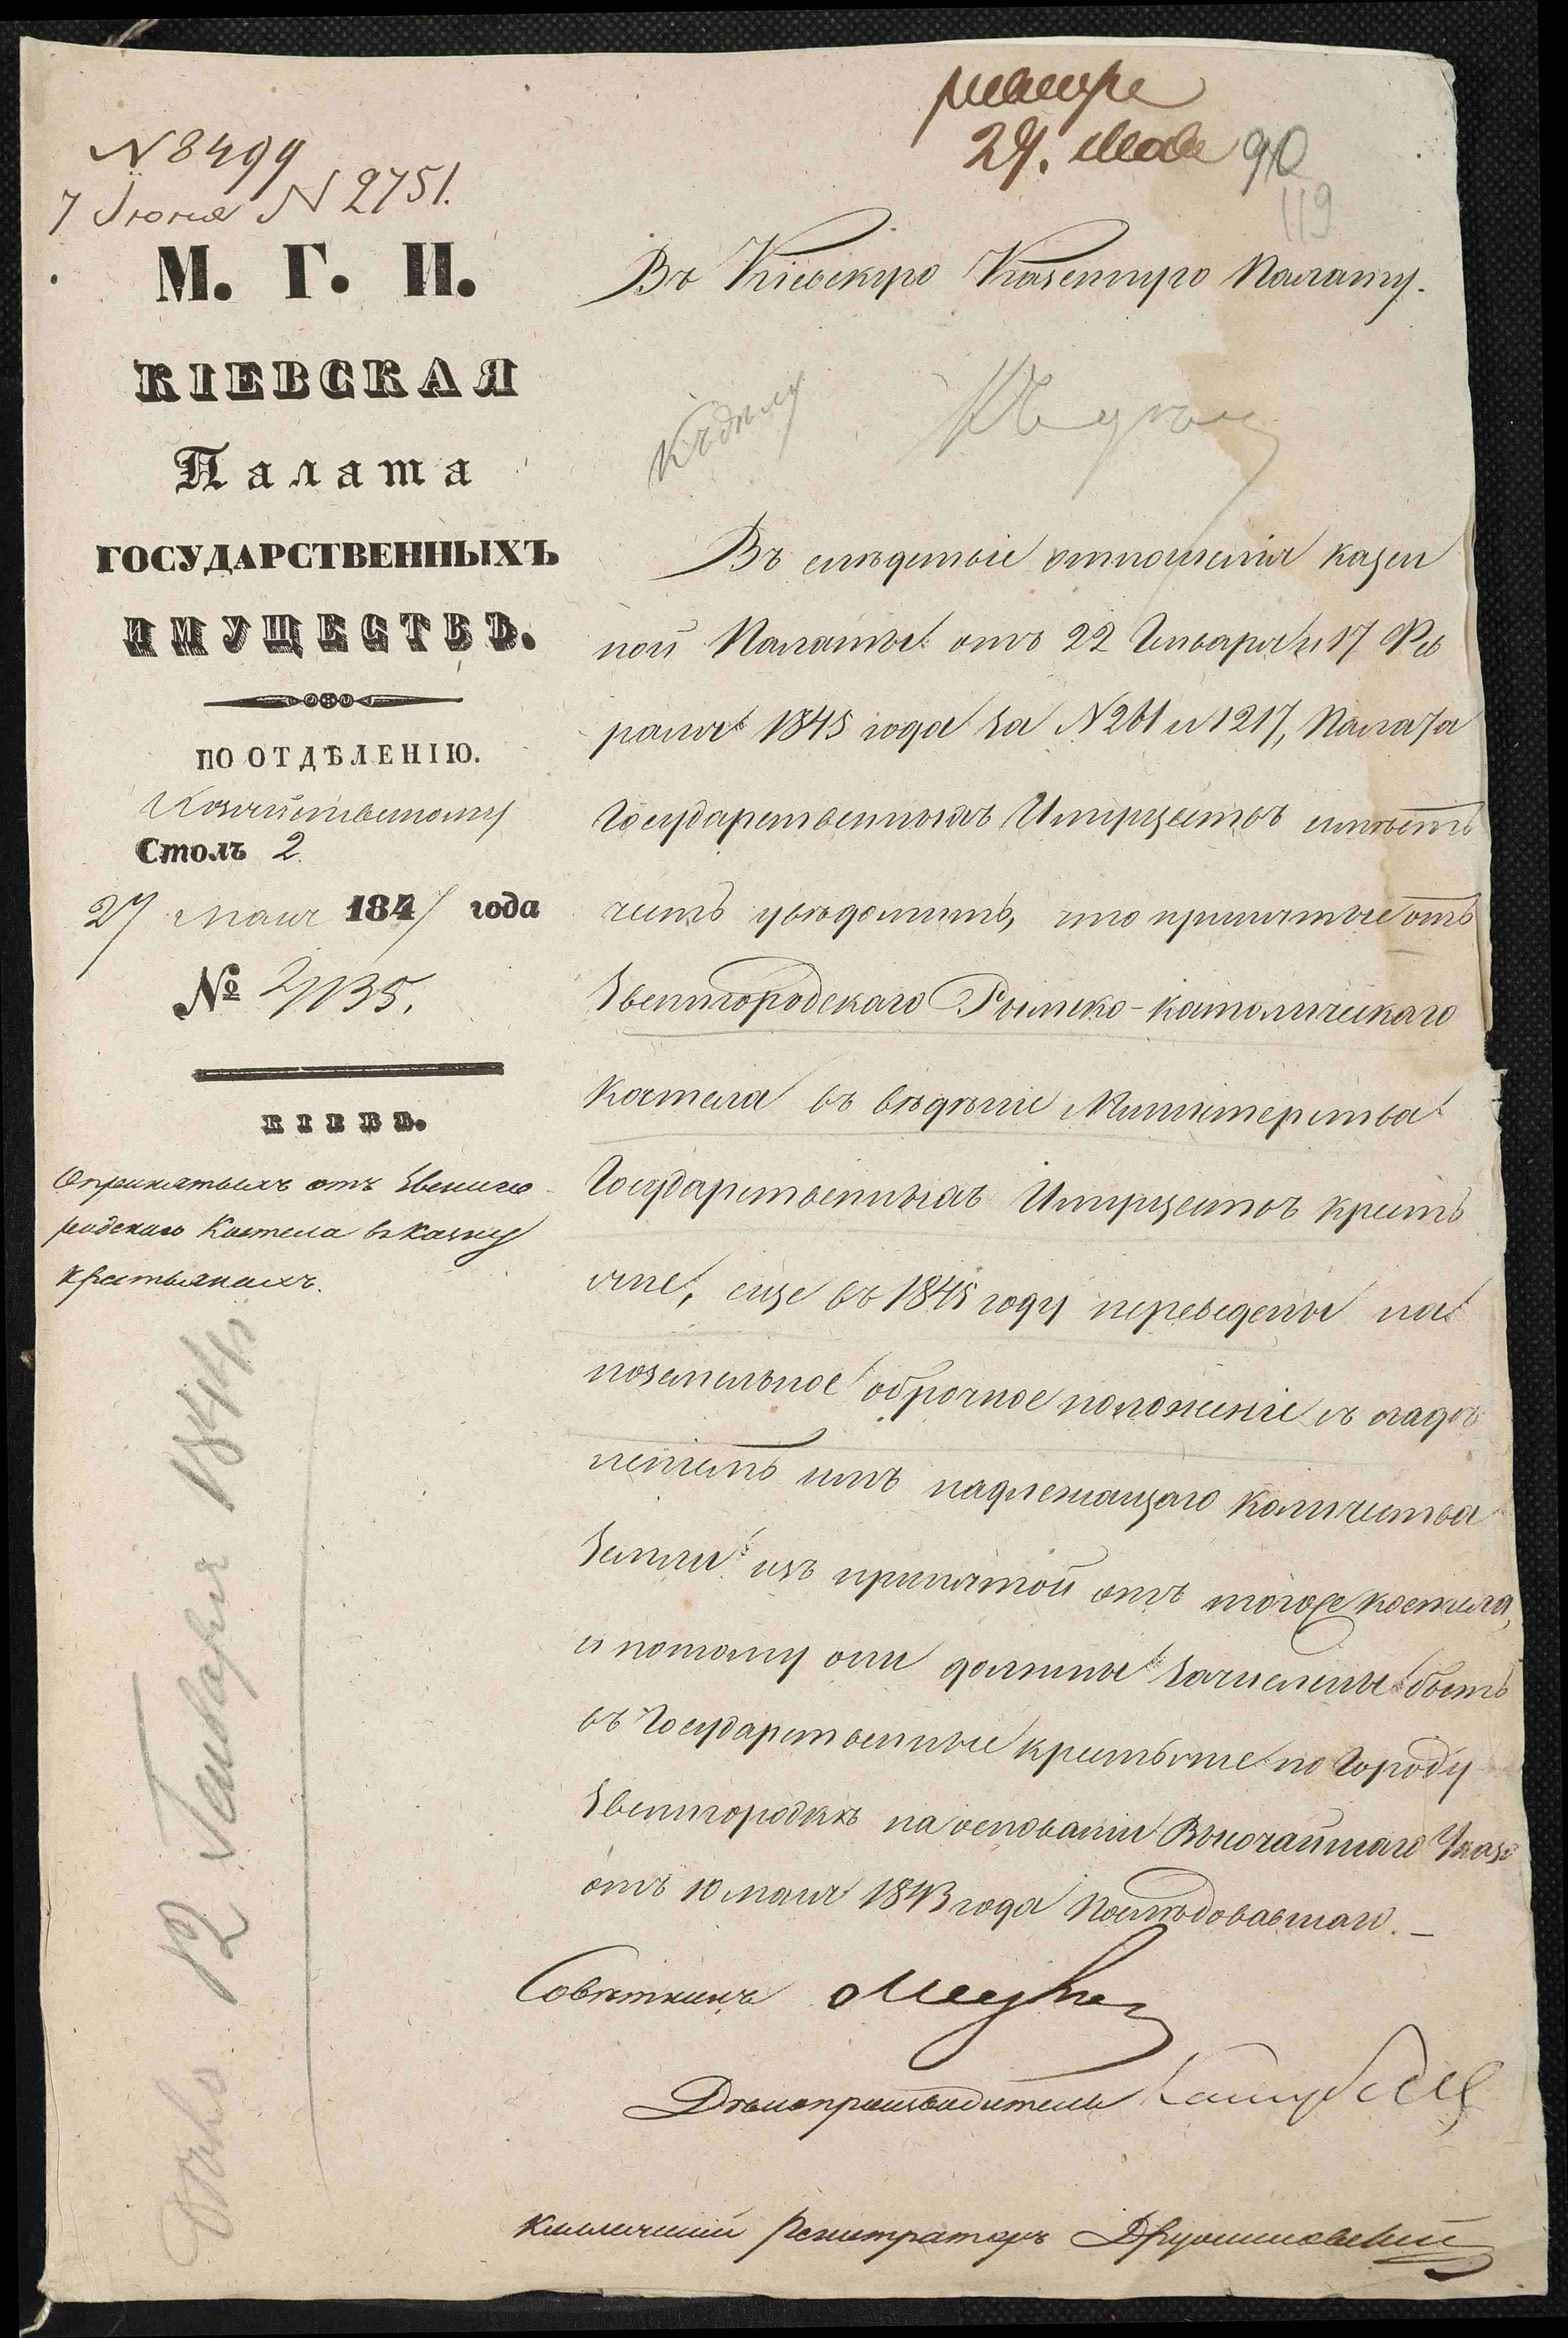 29. Мая
90
119
N 8499
7 Іюня N 2751.
М. Г. И.
КІЕВСКАЯ
Палата
ГОСУДАРСТВЕННЫХЪ
ИМУЩЕСТВЪ.
ПО ОТДѢЛЕНІЮ.
Хозяйственному
Столъ 2.
27 мая 1847 года
№
КІЕВЪ.
О принятыхъ отъ Звениго
родскаго Костела въ казну
крестьянахъ.
12 Генваря
Въ Кіевскую Казенную Палату.
Къ дѣлу
Къ дѣлу
Въ слѣдствіе отношенія Казен
ной Палаты отъ 22 Генваря и 17 Фев
раля 1845 года за N 261 и 1217, Палата
Государственныхъ Имуществъ имѣетъ
честь увѣдомить, что принятые отъ
Звенигородскаго Римско-католическаго
костела въ вѣдѣніе Министерства
Государственныхъ Имуществъ кресть
яне, еще въ 1845 году переведены на
поземельное оброчное положеніе съ надѣ
леніемъ имъ надлежащаго количества
земли изъ принятой отъ тогоже костела,
и потому они должны зачислены быть
въ Государственные крестьяне по Городу
Звенигородкѣ на основаніи Высочайшаго Указа
отъ 10 мая 1843 года послѣдовавшаго.
Совѣтникъ
Дѣлопроизводитель
Коллежскій Регистраторъ